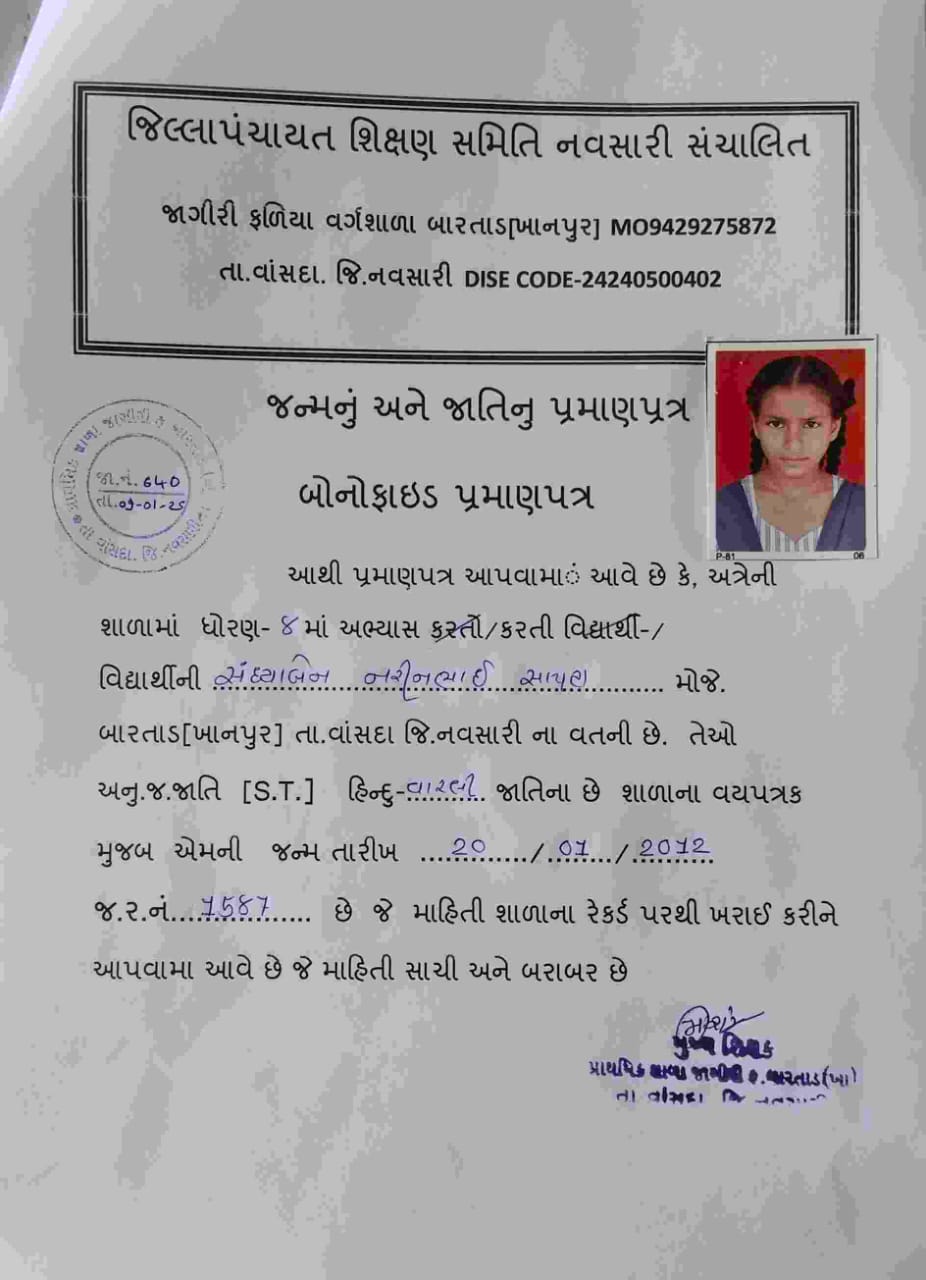 જિલ્લાપંચાયત શિક્ષણ સમિતિ નવસારી સંચાલિત
જાગીરી ફળિયા વર્ગશાળા બારતાડ[ખાનપુર] MO9429275872
તા.વાંસદા. જિ.નવસારી DISE CODE-24240500402
જન્મનું અને જાતિનુ પ્રમાણપત્ર
જા.નં. 640
તા.
તા વાંસદા. જિ.નવસારી
P-81 06
બોનોફાઇડ પ્રમાણપત્ર
આથી પ્રમાણપત્ર આપવામાં આવે છે કે, અત્રેની
શાળામાં ધોરણ- ૪ માં અભ્યાસ કરતો/કરતી વિદ્યાર્થી-/
વિદ્યાર્થીની સંધ્યાબેન નરીનભાઈ મોજે.
બારતાડ[ખાનપુર] તા.વાંસદા જિ.નવસારી ના વતની છે. તેઓ
અનુ.જ.જાતિ [S.T.] હિન્દુ-વારલી જાતિના છે શાળાના વયપત્રક
મુજબ એમની જન્મ તારીખ 20 / 01 / 2012
જ.ર.નં. 1587 છે જે માહિતી શાળાના રેકર્ડ પરથી ખરાઈ કરીને
આપવામા આવે છે જે માહિતી સાચી અને બરાબર છે
મુખ્ય શિક્ષક
પ્રાથમિક શાળા જાગીરી ફ. બારતાડ(ખા)
તા વાંસદા જિ નવસારી